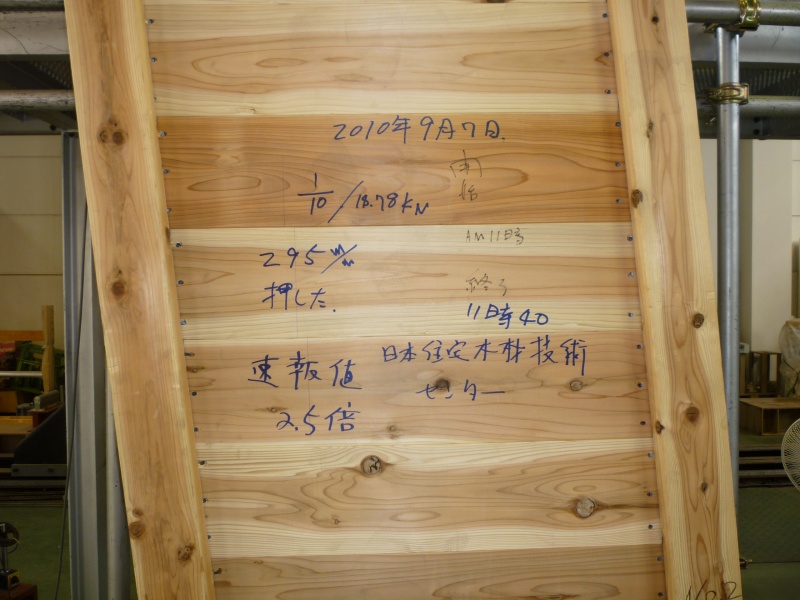 2010年9月7日.
開
始
1/10/18.78KN
AM11時
295m/m
押した.
終了
11時40
速報値
2.5倍
日本住宅木材技術
センター